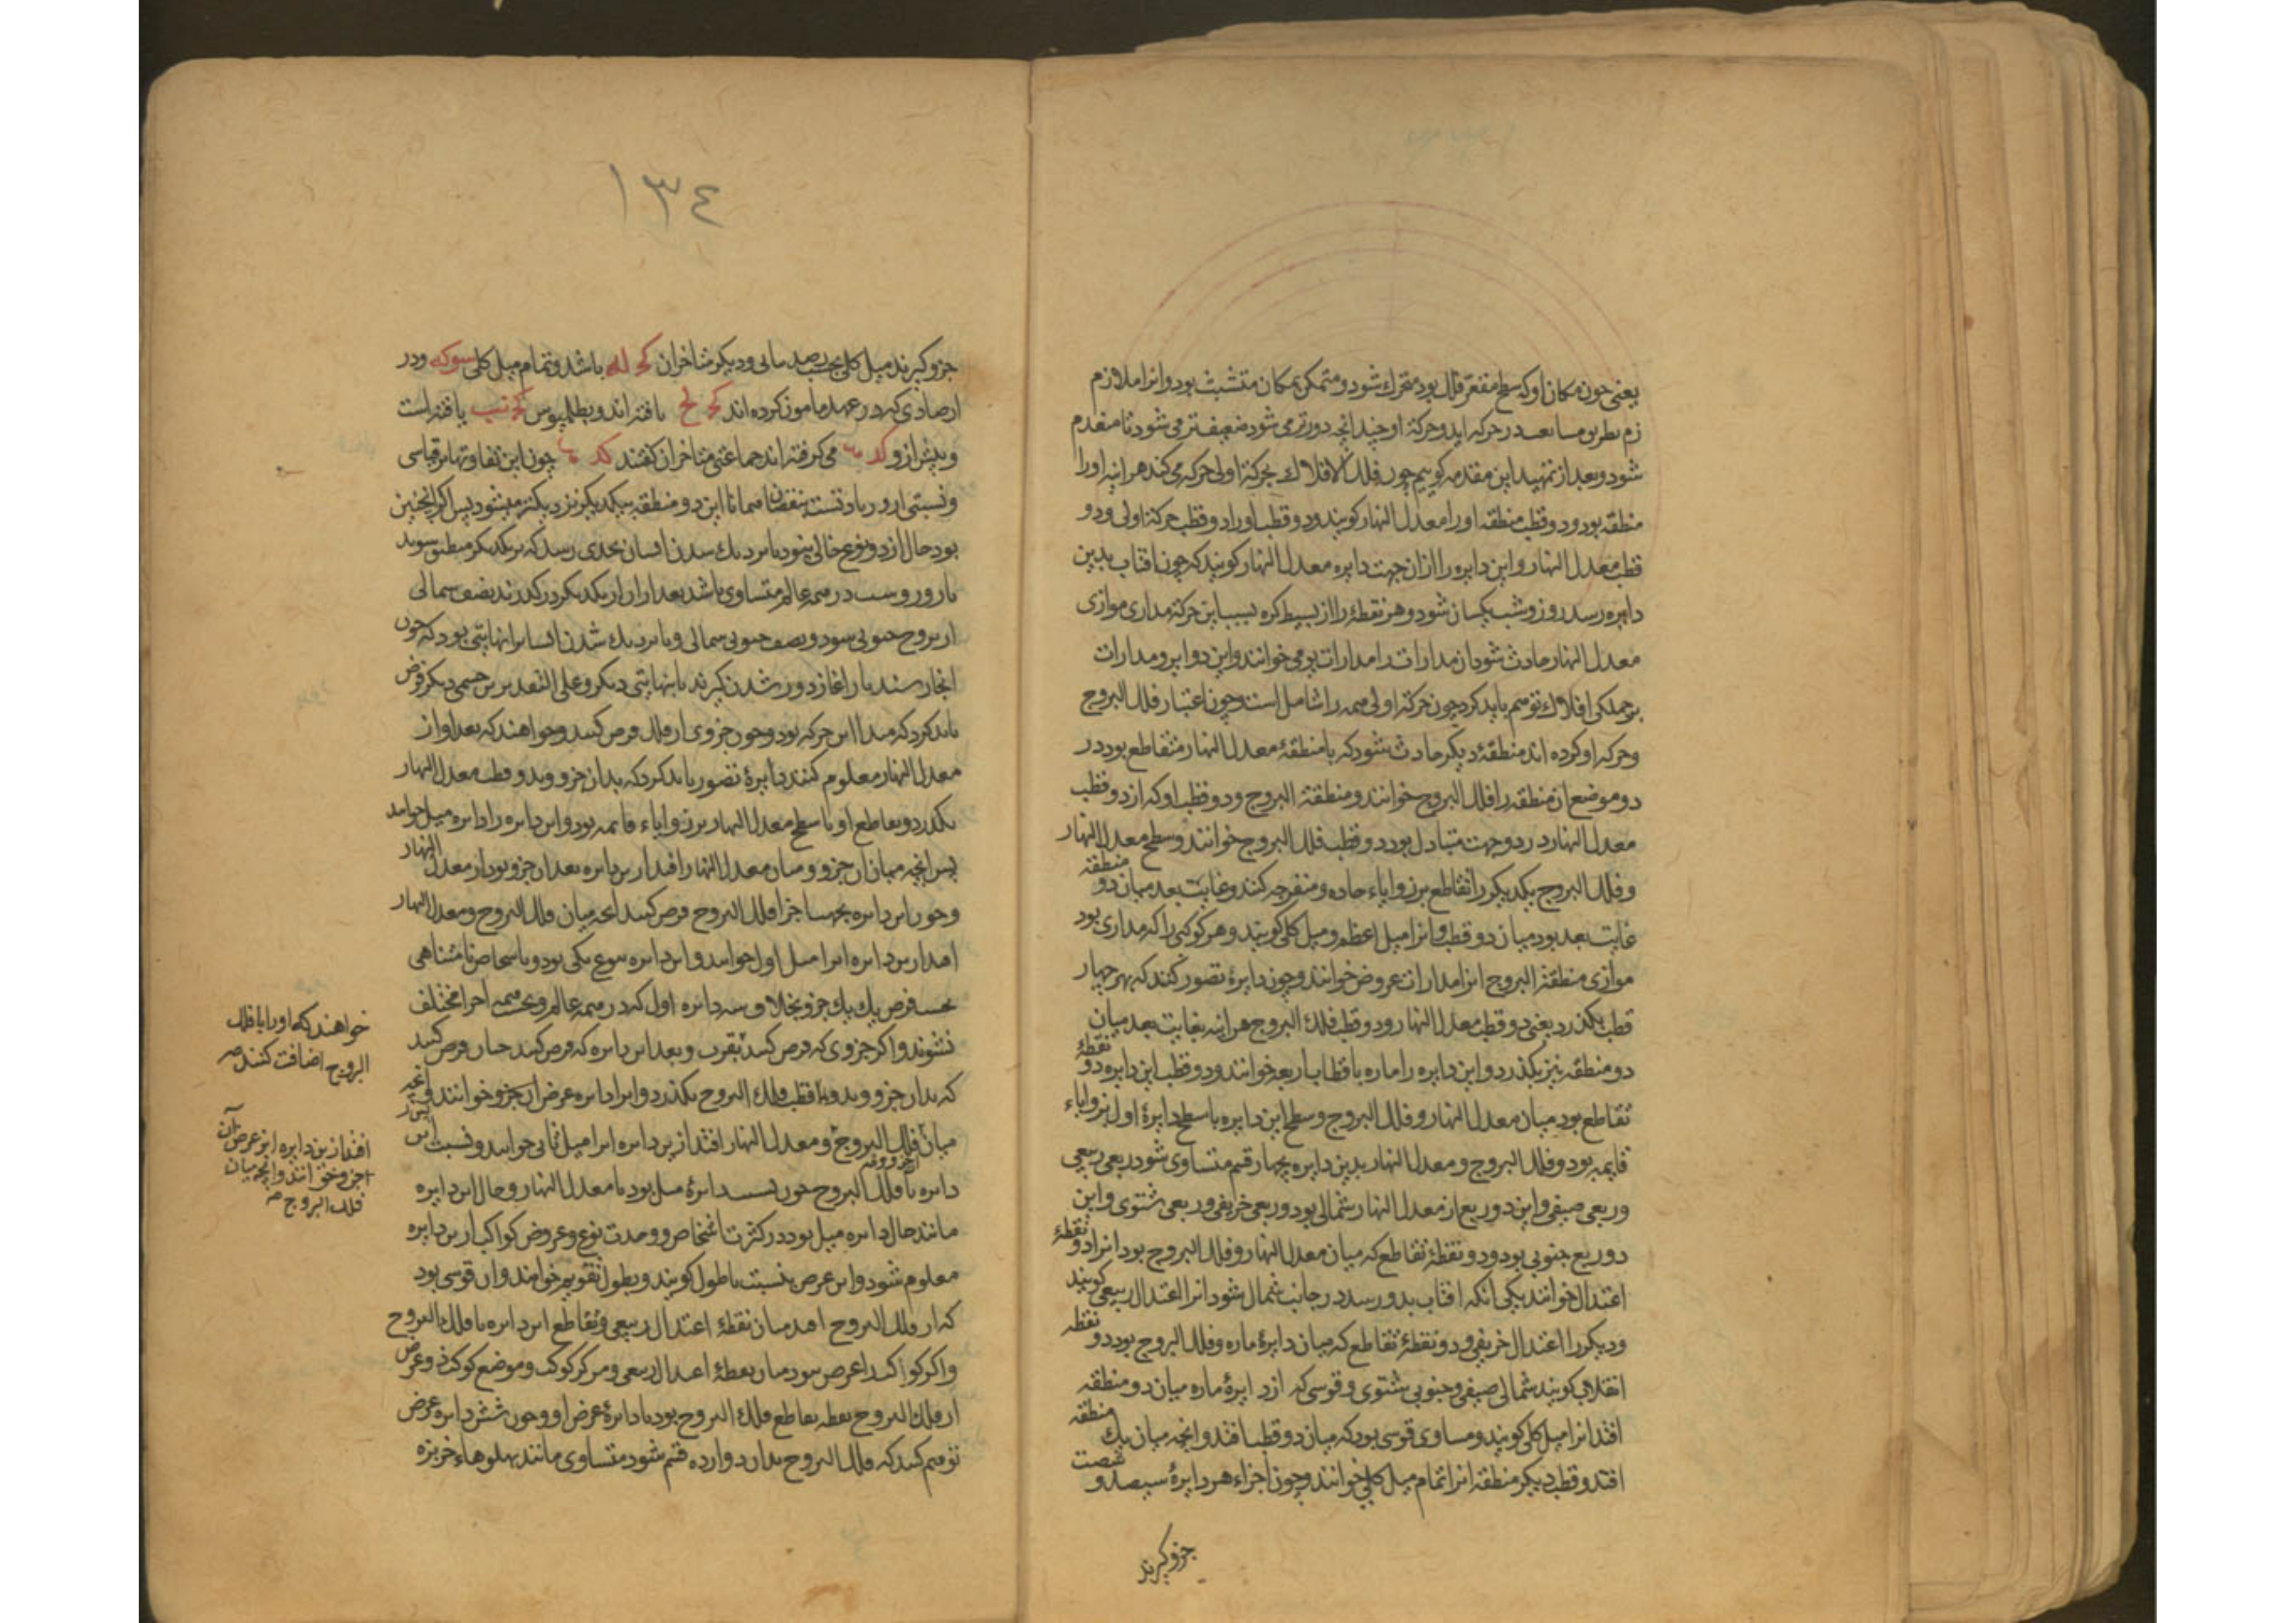 یعنی چون مکان او که سطح مقعر فلک بود متحرک شود و متمکن بمکان متشبث بود و انرا ملازم
شود و بعد از تمهید این مقدمه کوییم چون فلک الافلاک بحرکة اولی حرکه می کند هراینه اورا
منطقه بود و دو قطب منطقه اورا معدل النهار کویند و دو قطب اورا دو قطب حرکة اولی و دو
قطب معدل النهار و این دایره را ازان جهت دایره معدل النهار کویند که چون افتاب بدین
دایره رسد روز و شب یکسان شود و هر نقطهٔ را از بسیط کره بسبب این حرکة مداری موازی
معدل النهار حادث شود ان مدارات را مدارات یومی خوانند و این دوایر و مدارات
بر جملکی افلاک توهم باید کرد چون حرکة اولی همه را شامل است و چون اعتبار فلک البروج
و حرکه او کرده اند منطقهٔ دیکر حادث شود که با منطقهٔ معدل النهار متقاطع بود در
دو موضع ان منطقه را فلک البروج خوانند و منطقة البروج و دو قطب او که از دو قطب
معدل النهار در دو جهت متبادل بود دو قطب فلک البروج خوانند و سطح معدل النهار
و فلک البروج یکدیکر را تقاطع بر زوایاء حاده و منفرجه کنند و غایت بعد میان دو منطقه
غایت بعد بود میان دو قطب و انرا میل اعظم و میل کلی کویند و هر کوکبی را که مداری بود
موازی منطقة البروج انرا مدارات عروض خوانند و چون دایرهٔ تصور کنند که بهر چهار
قطب بکذرد یعنی دو قطب معدل النهار و دو قطب فلک البروج هراینه بغایت بعد میان
دو منطقه نیز بکذرد و این دایره را ماره باقطاب اربعه خوانند و دو قطب این دایره دو نقطهٔ
تقاطع بود میان معدل النهار و فلک البروج و سطح این دایره با سطح دایرهٔ اول بر زوایاء
قایمه بود و فلک البروج و معدل النهار بدین دایره بچهار قسم متساوی شود ربعی ربیعی
و ربعی صیفی و این دو ربع از معدل النهار شمالی بود و ربعی خریفی و ربعی شتوی و این
دو ربع جنوبی بود و دو نقطهٔ تقاطع که میان معدل النهار و فلک البروج بود انرا دو نقطهٔ
اعتدال خوانند یکی انکه افتاب بدو رسد در جانب شمال شود انرا اعتدال ربیعی کویند
و دیکر را اعتدال خریفی و دو نقطهٔ تقاطع که میان دایرهٔ ماره و فلک البروج بود دو نقطه
انقلاب کویند شمالی صیفی و جنوبی شتوی و قوسی که از دایرهٔ ماره میان دو منطقه
افتد انرا میل کلی کویند و مساوی قوسی بود که میان دو قطب افتد و انچه میان یک منطقه
افتد و قطب دیکر منطقه انرا تمام میل کلی خوانند و چون اجزاء هر دایرهٔ سیصد و شصت
جزو کیرند
١٣٤
جزو کیرند میل کلی بحسب رصد مانی و دیکر متاخران کج له باشد و تمام میل کلی سو که و در
ارصادی که در عهد مامون کرده اند کج لج یافته اند و بطلمیوس کج نب یافته است
و پیش از و کد می کرفته اند جماعتی متاخران کفتند کد چون این تفاوتها بر قیاسی
بود حال از دو نوع خالی نبود یا نزدیک شدن ایشان بحدی رسد که بر یکدیکر منطبق شوند
تا روز و شب در همه عالم متساوی باشد بعد ازان از یکدیکر درکذرند نصف شمالی
از بروج جنوبی شود و نصف جنوبی شمالی و یا نزدیک شدن ایشانرا نهایتی بود که چون
انجا رسند باز اغاز دور شدن کیرند تا بنهایتی دیکر و علی التقدیرین جسمی دیکر فرض
باید کرد که مبدا این حرکه بود و چون جزوی از فلک فرض کنند و خواهند که بعد او از
معدل النهار معلوم کنند دایرهٔ تصور باید کرد که بدان جزو و بدو قطب معدل النهار
بکذرد و تقاطع او با سطح معدل النهار بر زوایاء قایمه بود و این دایره را دایره میل خوانند
پس انچه میان ان جزو و میان معدل النهار افتد ازین دایره بعد ان جزو بود از معدل النهار
و چون این دایره بجهت اجزا فلک البروج فرض کنند انچه میان فلک البروج و معدل النهار
افتد ازین دایره انرا میل اول خوانند و این دایره بنوع یکی بود و باشخاص نامتناهی
بحسب فرض یک یک جزو بخلاف سه دایره اول که در همه عالم و بحسب همه اجزا مختلف
نشوند و اکر جزوی که فرض کنند بقرب و بعد این دایره که فرض کنند چنان فرض کنند
که بدان جزو و بدو قطب فلک البروج بکذرد و انرا دایره عرض ان جزو خوانند و انچه
میان فلک البروج و معدل النهار افتد ازین دایره انرا میل ثانی خوانند و نسبت این
دایره با فلک البروج چون نسبت دایرهٔ میل بود با معدل النهار و حال این دایره
مانند حال دایره میل بود در کثرت اشخاص و وحدت نوع و عروض کواکب ازین دایره
معلوم شود و این عرض بنسبت با طول کویند و بطول تقویم خواهند و ان قوسی بود
که از فلک البروج افتد میان نقطهٔ اعتدال ربیعی و تقاطع این دایره با فلک البروج
و اکر کواکب را عرض نبود میان نقطهٔ اعتدال ربیعی و مرکز کوکب و موضع کوکب ذو عرض
از فلک البروج نقطه تقاطع فلک البروج بود با دایرهٔ عرض او و چون شش دایره عرض
توهم کنند که فلک البروج بدان دوازده قسم شود متساوی مانند پهلوهاء خربزه
خواهند که او را با فلک
البروج اضافت کنند صح
افتد ازین دایره انرا عرض آن
جزو خوانند و انچه میان
فلک البروج صح